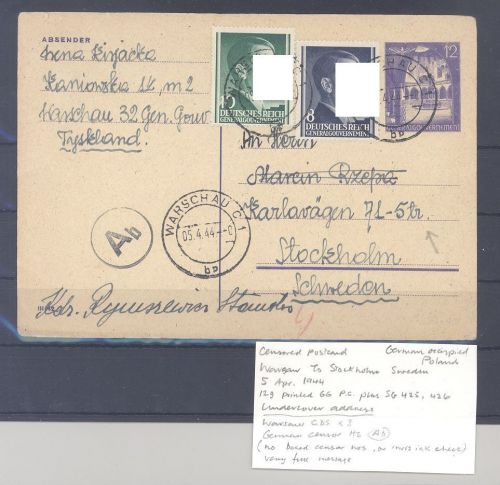 ABSENDER
Irena Kirjacka
Kaniowska 14, m 2
Warschau 32 Gen. Gouv
Tyskland.
DEUTSCHES REICH
GENERALGOUVERNEMENT
8
DEUTSCHES REICH
GENERALGOUVERNEMENT
12
GENERALGOUVERNEMENT
An Herrn
Marcin Rzepa
Karlavägen 71-5tr.
Stockholm
Schweden
WARSCHAU C 1
05.4.44
bb
Ab
Censored postcard
German occupied
Poland
Warsaw to Stockholm Sweden
5 Apr. 1944
12g printed GG P.C. plus SG 425, 426
Undercover address
Warsaw CDS x 3
German censor HS (Ab)
(no boxed censor nos, or invis ink check)
very full message